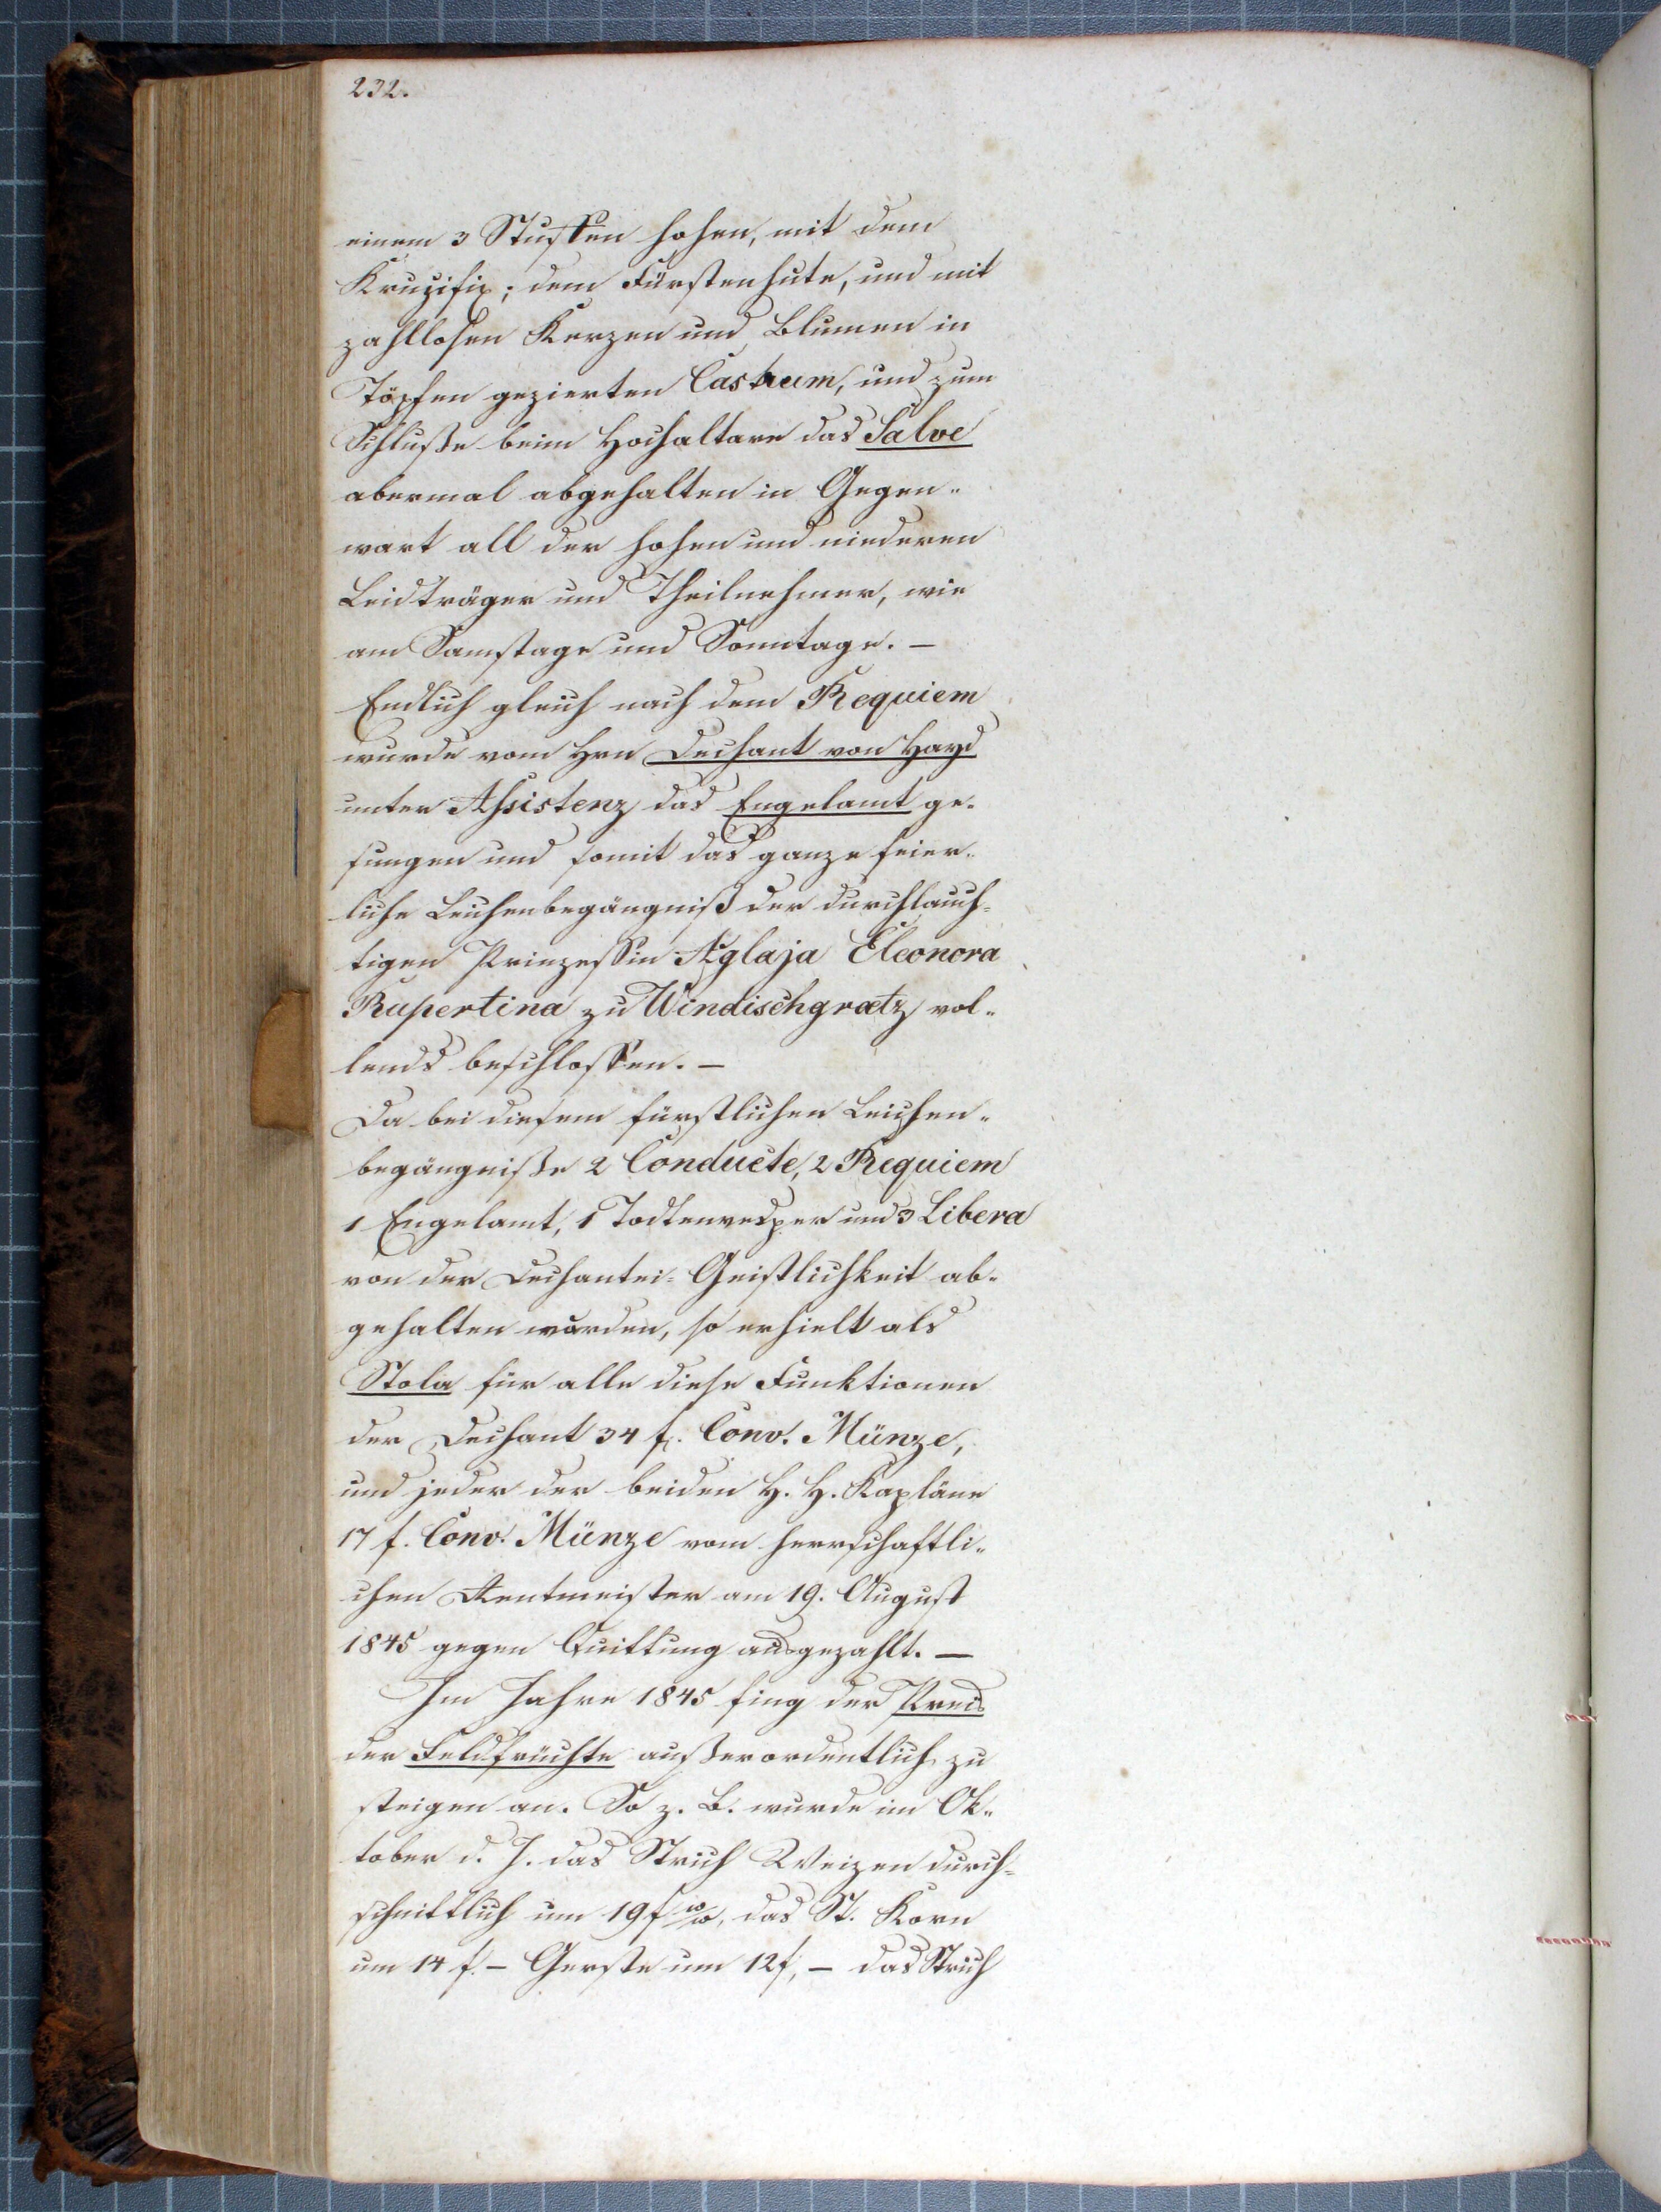 232.
einem 3 Stuffen hohen, mit dem
Kruzifix; dem Fürstenhute, und mit
zahllosen Kerzen und Blumen in
Töpfen gezierten Castrum, und zum
Schluße beim Hochaltare das Salve
abermal abgehalten in Gegen-
wart all der hohen und niederen
Leidträger und Theilnehmer, wie
am Samstage und Sonntage. —
Endlich gleich nach dem Requiem
wurde vom Hrn Dechant von Hayd
unter Assistenz das Engelamt ge-
sungen und somit das ganze feier-
liche Leichenbegängniß der durchlauch-
tigen Prinzessin Aglaja Eleonora
Rupertina zu Windischgraetz vol-
lends beschlossen. —
Da bei diesem fürstlichen Leichen-
begängniße 2 Conducte, 2 Requiem
1 Engelamt, 1 Todtenvesper und 3 Libera
von der Dechantei-Geistlichkeit ab-
gehalten wurden, so erhielt als
Stola für alle diese Funktionen
der Dechant 34 f. Conv. Münze,
und jeder der beiden H. H. Kapläne
17 f. Conv. Münze vom herrschaftli-
chen Rentmeister am 19. August
1845 gegen Quittung ausgezahlt. —
Im Jahre 1845 fing der Preis
der Feldfrüchte außerordentlich zu
steigen an. So z. B. wurde im Ok-
tober d. J. das Strich Weizen durch-
schnittlich um 19 f, das St. Korn
um 14 f. — Gerste um 12 f, — das Strich